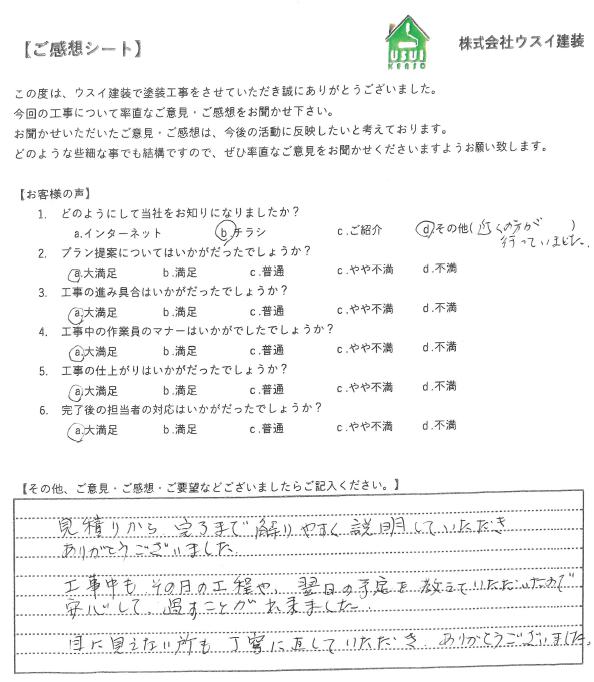 【ご感想シート】
USUI
KENSO
株式会社ウスイ建装
この度は、ウスイ建装で塗装工事をさせていただき誠にありがとうございました。
今回の工事について率直なご意見・ご感想をお聞かせ下さい。
お聞かせいただいたご意見・ご感想は、今後の活動に反映したいと考えております。
どのような些細な事でも結構ですので、ぜひ率直なご意見をお聞かせくださいますようお願い致します。
【お客様の声】
1. どのようにして当社をお知りになりましたか？
a.インターネット b.チラシ c.ご紹介 d.その他(近くの方が行っていました。)
2. プラン提案についてはいかがだったでしょうか？
a.大満足 b.満足 c.普通 c.やや不満 d.不満
3. 工事の進み具合はいかがだったでしょうか？
a.大満足 b.満足 c.普通 c.やや不満 d.不満
4. 工事中の作業員のマナーはいかがでしたでしょうか？
a.大満足 b.満足 c.普通 c.やや不満 d.不満
5. 工事の仕上がりはいかがだったでしょうか？
a.大満足 b.満足 c.普通 c.やや不満 d.不満
6. 完了後の担当者の対応はいかがだったでしょうか？
a.大満足 b.満足 c.普通 c.やや不満 d.不満
【その他、ご意見・ご感想・ご要望などございましたらご記入ください。】
見積りから完了まで解りやすく説明していただき
ありがとうございました
工事中もその日の工程や、翌日の予定を教えていただいたので
安心して、過すことが出来ました。
目に見えない所も丁寧に直していただき、ありがとうございました。